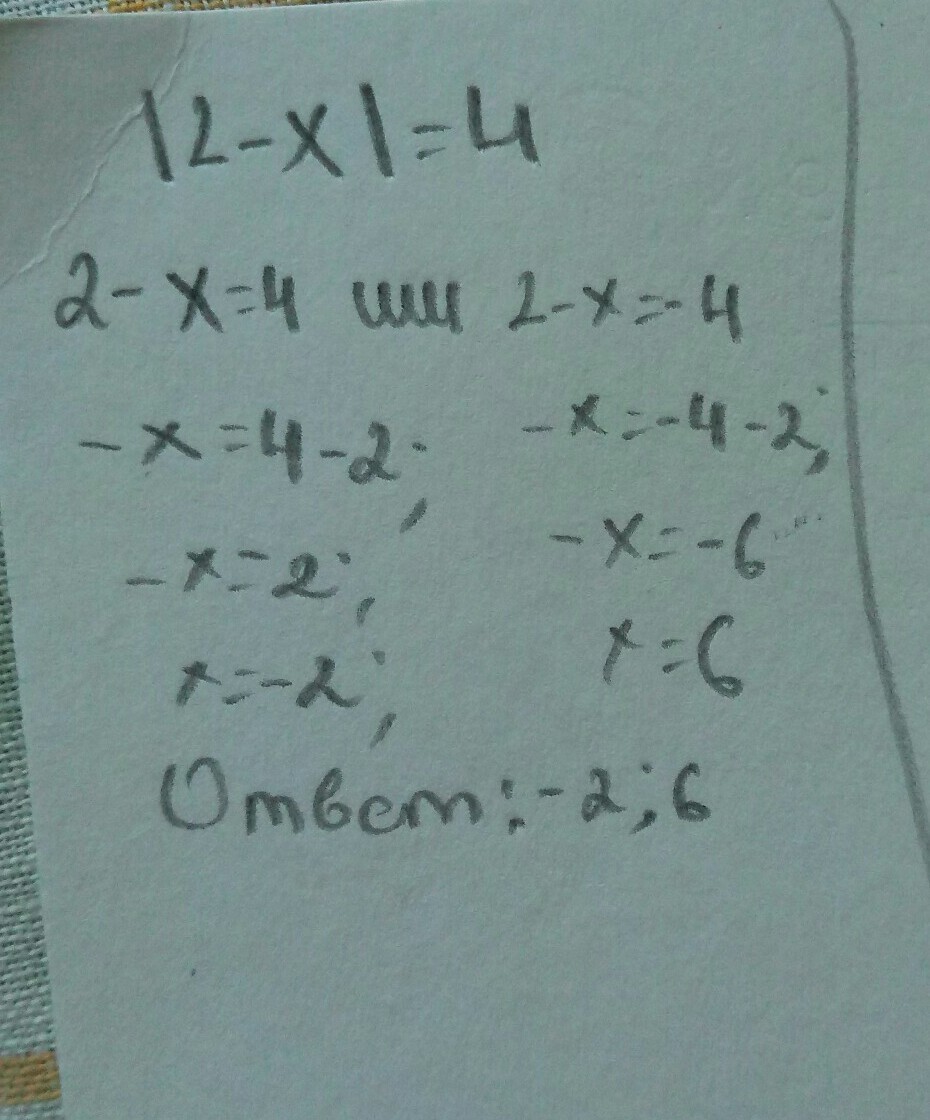 |2-x|=4
2-x=4 или 2-x=-4
-x=4-2; -x=-4-2;
-x=2; -x=-6
x=-2; x=6
Ответ: -2; 6